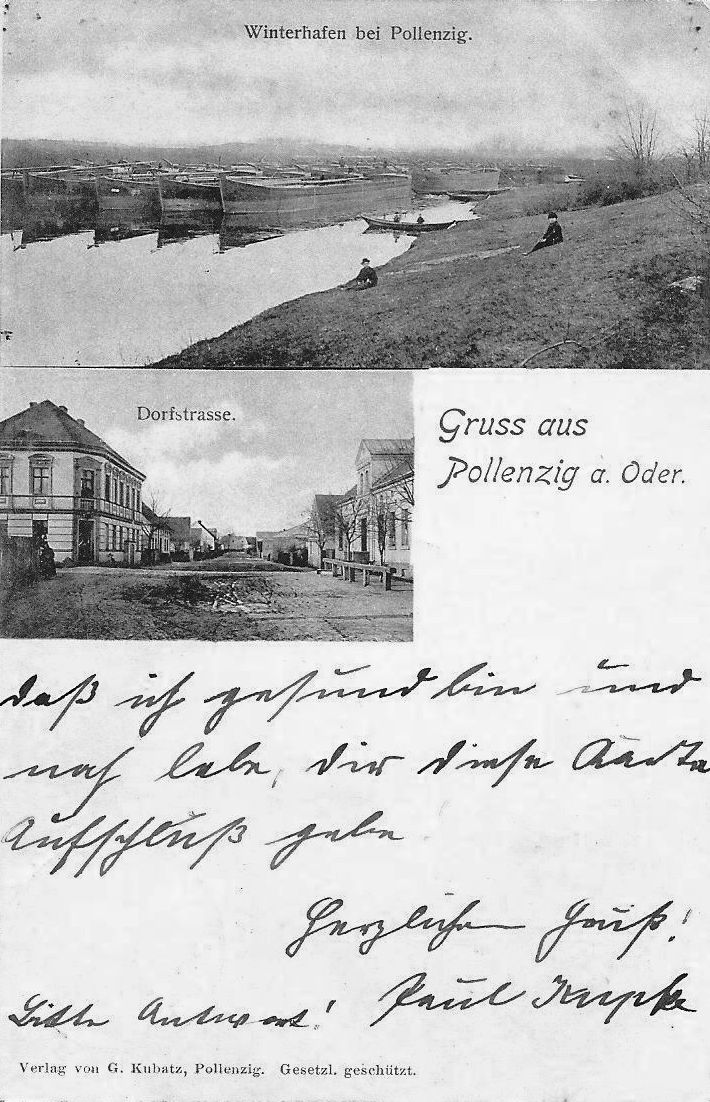 Winterhafen bei Pollenzig.
Dorfstrasse.
Gruss aus
Pollenzig a. Oder.
daß ich gesund bin und
noch lebe, dir diese Kaarte
Aufschluß gebe
Herzlichen Gruß!
Bitte Antwort! Paul
Verlag von G. Kubatz, Pollenzig. Gesetzl. geschützt.